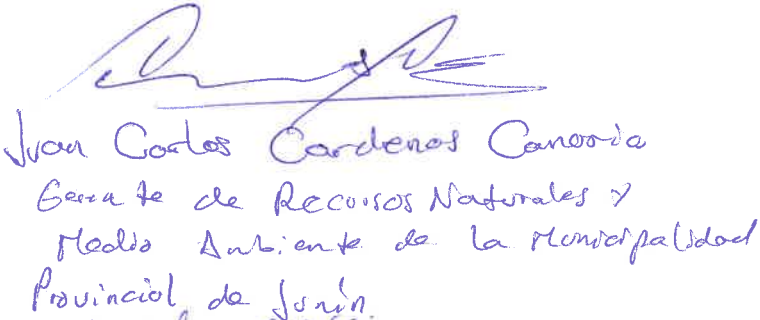 Juan Carlos Cardenas Canorio
Gerente de Recursos Naturales y
Medio Ambiente de la Municipalidad
Provincial de Junín